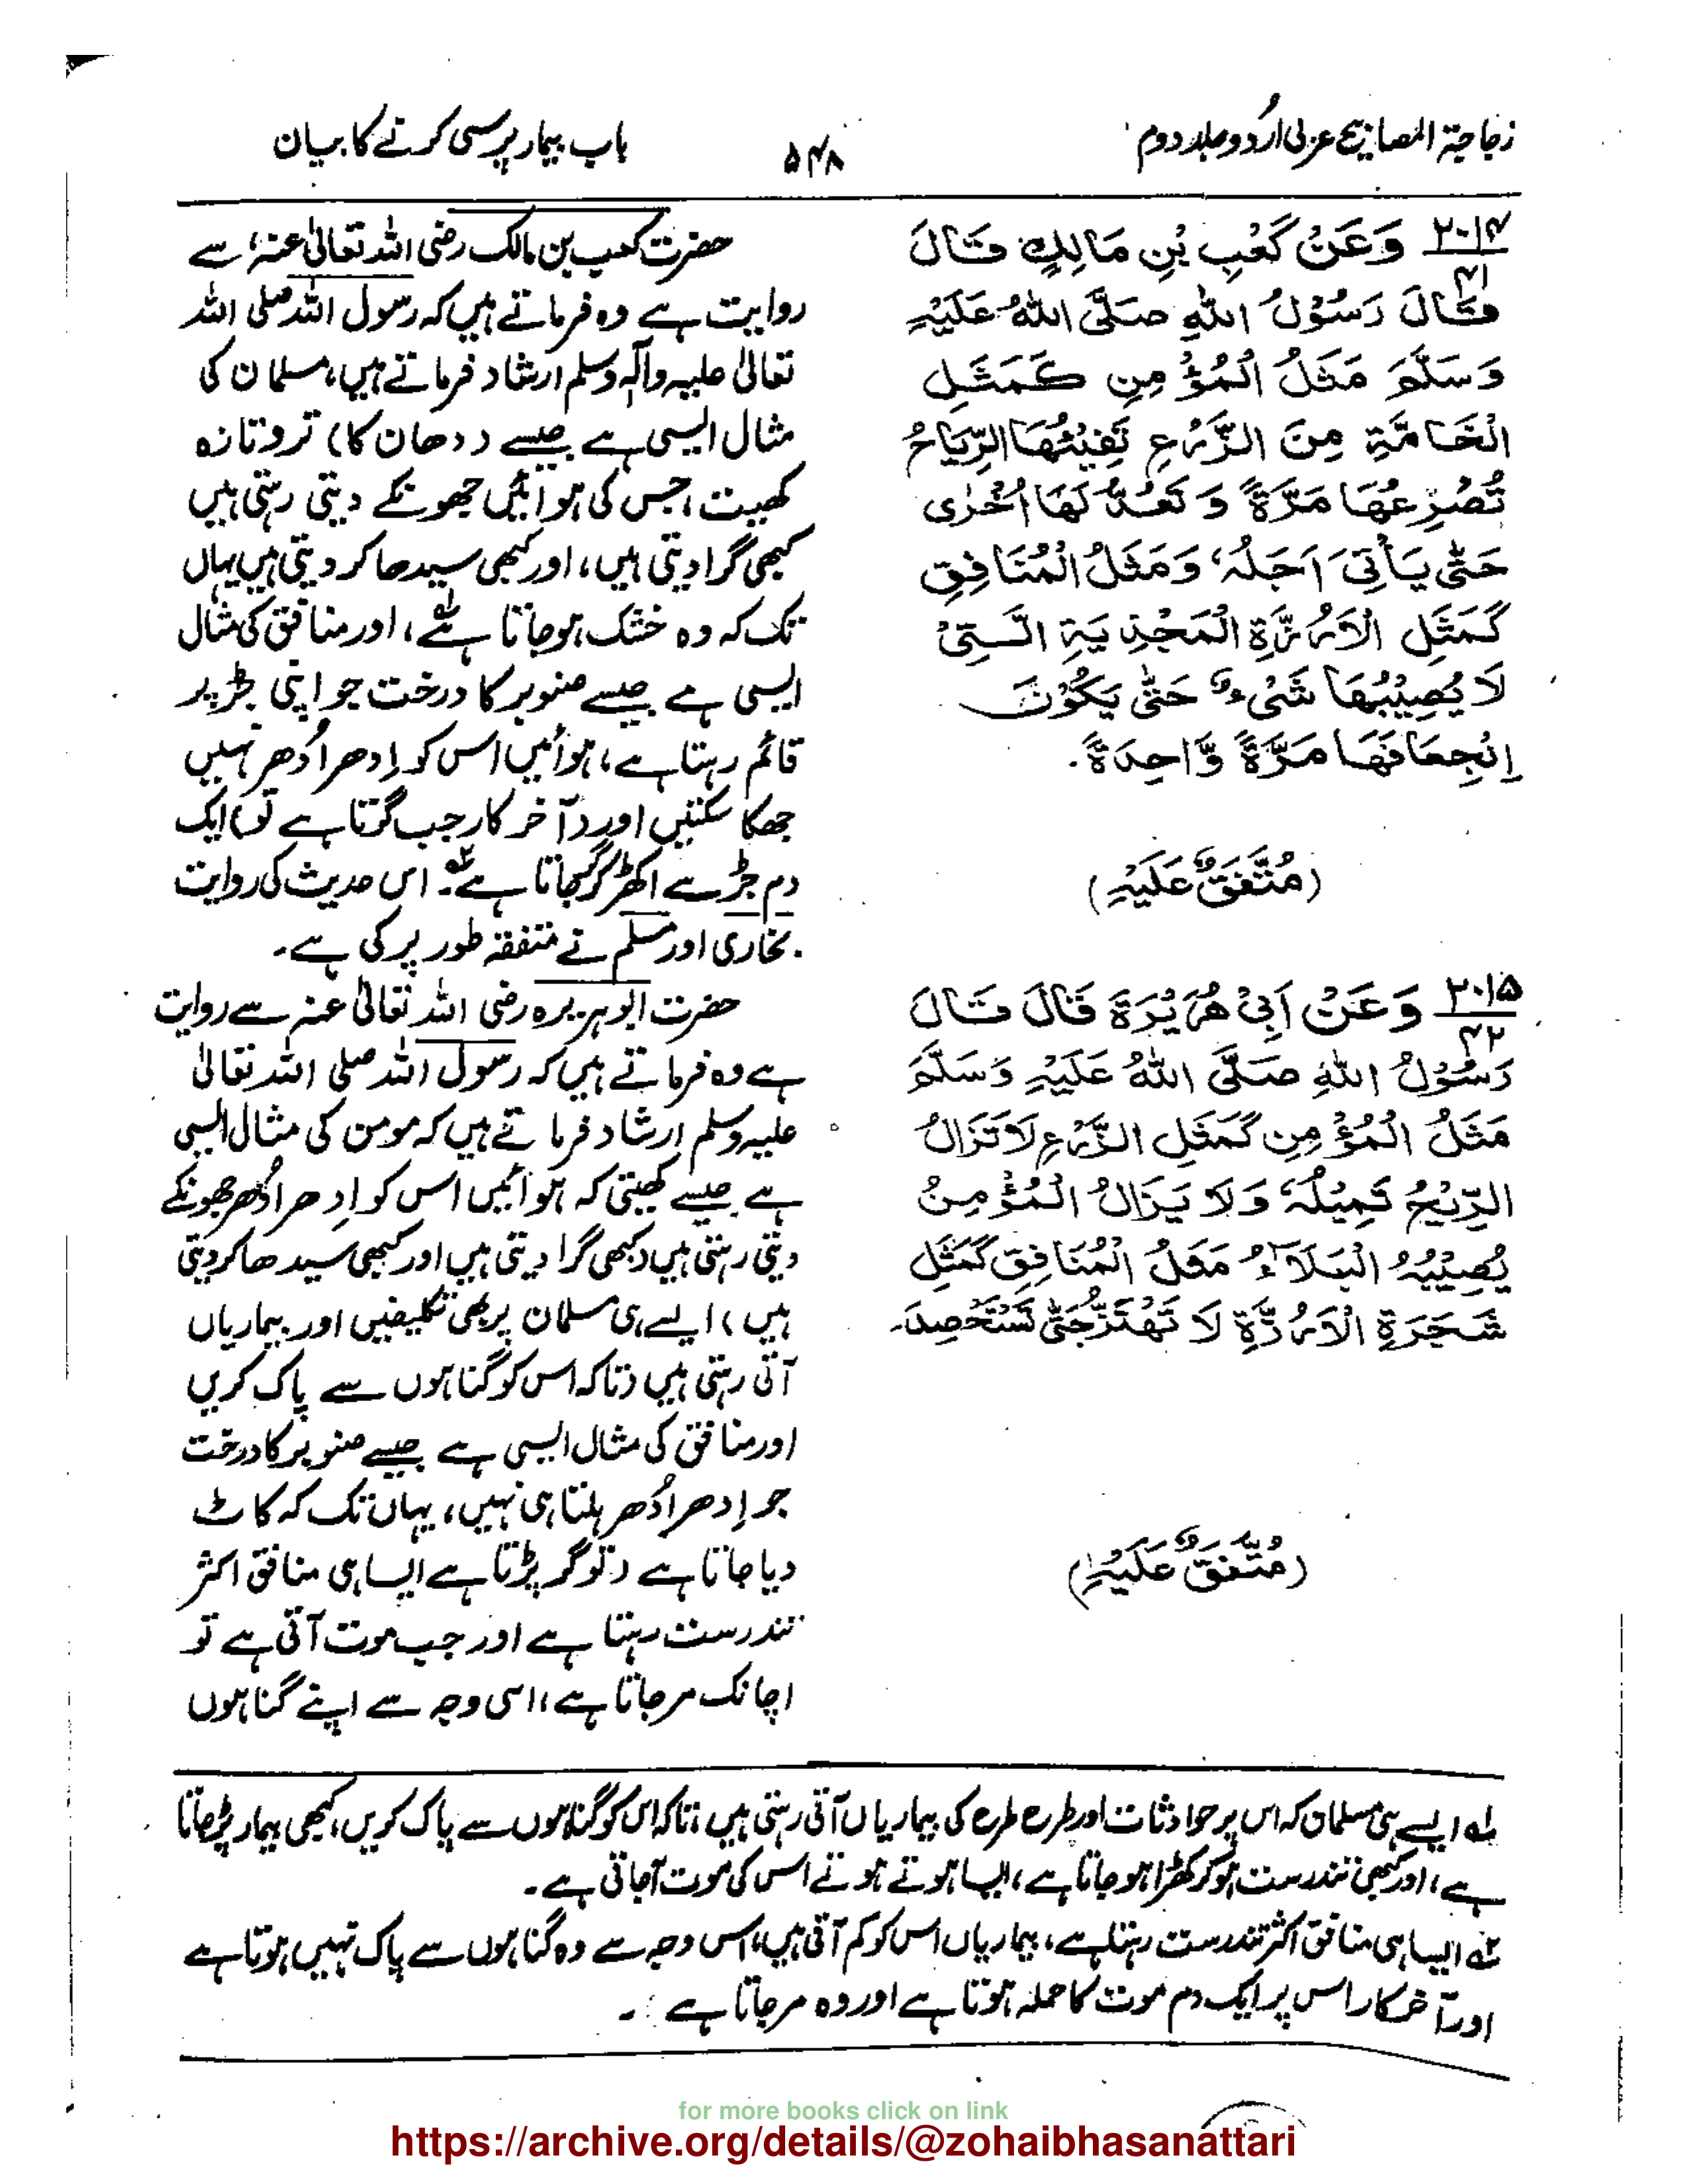 زجاجۃ المصابیح عربی اُردو جلد دوم
۵۴۸
باب بیمار پرسی کرنے کا بیان
۲۰۱۴
۴۱
وَعَنْ كَعْبِ بْنِ مَالِكٍ قَالَ
قَالَ رَسُوْلُ اللهِ صَلَّى اللهُ عَلَيْهِ
وَسَلَّمَ مَثَلُ الْمُؤْمِنِ كَمَثَلِ
الْخَامَّةِ مِنَ الزَّرْعِ تَفِيْئُهَا الرِّيَاحُ
تُصْرِعُهَا مَرَّةً وَ تَعْدُ لَهَا اُخْرٰى
حَتّٰى يَأْتِىَ اَجَلُهٗ، وَمَثَلُ الْمُنَافِقِ
كَمَثَلِ الْاَرْزَةِ الْمَجْذِيَةِ الَّتِىْ
لَا يُصِيْبُهَا شَىْءٌ حَتّٰى يَكُوْنَ
اِنْجِعَافَهَا مَرَّةً وَّاحِدَةً.
(مُتَّفَقٌ عَلَيْهِ)
حضرت کعب بن مالک رضی اللہ تعالیٰ عنہٗ سے
روایت ہے وہ فرماتے ہیں کہ رسول اللہ صلی اللہ
تعالیٰ علیہ وآلہٖ وسلم ارشاد فرماتے ہیں، مسلمان کی
مثال ایسی ہے جیسے (دھان کا) تروتازہ
کھیت، جس کی ہوائیں جھونکے دیتی رہتی ہیں
کبھی گرا دیتی ہیں، اور کبھی سیدھا کر دیتی ہیں یہاں
تک کہ وہ خشک ہوجاتا ہے لہ، اور منافق کی مثال
ایسی ہے جیسے صنوبر کا درخت جو اپنی جڑ پر
قائم رہتا ہے، ہوائیں اس کو اِدھر اُدھر نہیں
جھکا سکتیں اور (آخر کار جب گرتا ہے تو) ایک
دم جڑ سے اکھڑ کر گر جاتا ہے۲؎۔ اس حدیث کی روایت
بخاری اور مسلم نے متفقہ طور پر کی ہے۔
۲۰۱۵
۴۲
وَعَنْ اَبِىْ هُرَيْرَةَ قَالَ قَالَ
رَسُوْلُ اللهِ صَلَّى اللهُ عَلَيْهِ وَسَلَّمَ
مَثَلُ الْمُؤْمِنِ كَمَثَلِ الزَّرْعِ لَا تَزَالُ
الرِّيْحُ تَمِيْلُهٗ وَلَا يَزَالُ الْمُؤْمِنُ
يُصِيْبُهُ الْبَلَاءُ مَثَلُ الْمُنَافِقِ كَمَثَلِ
شَجَرَةِ الْاَرْزَةِ لَا تَهْتَزُّ حَتّٰى تُسْتَحْصِدَ۔
(مُتَّفَقٌ عَلَيْهِ)
حضرت ابوہریرہ رضی اللہ تعالیٰ عنہ سے روایت
ہے وہ فرماتے ہیں کہ رسول اللہ صلی اللہ تعالیٰ
علیہ وسلم ارشاد فرماتے ہیں کہ مومن کی مثال ایسی
ہے جیسے کھیتی کہ ہوائیں اس کو اِدھر اُدھر جھونکے
دیتی رہتی ہیں (کبھی گرا دیتی ہیں اور کبھی سیدھا کر دیتی
ہیں) ایسے ہی مسلمان پر بھی تکلیفیں اور بیماریاں
آتی رہتی ہیں (تاکہ اس کو گناہوں سے پاک کریں
اور منافق کی مثال ایسی ہے جیسے صنوبر کا درخت
جو اِدھر اُدھر ہلتا ہی نہیں، یہاں تک کہ کاٹ
دیا جاتا ہے (تو گر پڑتا ہے ایسا ہی منافق اکثر
تندرست رہتا ہے اور جب موت آتی ہے تو
اچانک مر جاتا ہے، اسی وجہ سے اپنے گناہوں
لہ ایسے ہی مسلمان کہ اس پر حوادثات اور طرح طرح کی بیماریاں آتی رہتی ہیں، تاکہ اس کو گناہوں سے پاک کریں، کبھی بیمار پڑ جاتا
ہے، اور کبھی تندرست ہو کر کھڑا ہو جاتا ہے، ایسا ہوتے ہوتے اس کی موت آجاتی ہے۔
۲؎ ایسا ہی منافق اکثر تندرست رہتا ہے، بیماریاں اس کو کم آتی ہیں، اس وجہ سے وہ گناہوں سے پاک نہیں ہوتا ہے
اور آخر کار اس پر ایک دم موت کا حملہ ہوتا ہے اور وہ مر جاتا ہے۔
for more books click on link
https://archive.org/details/@zohaibhasanattari